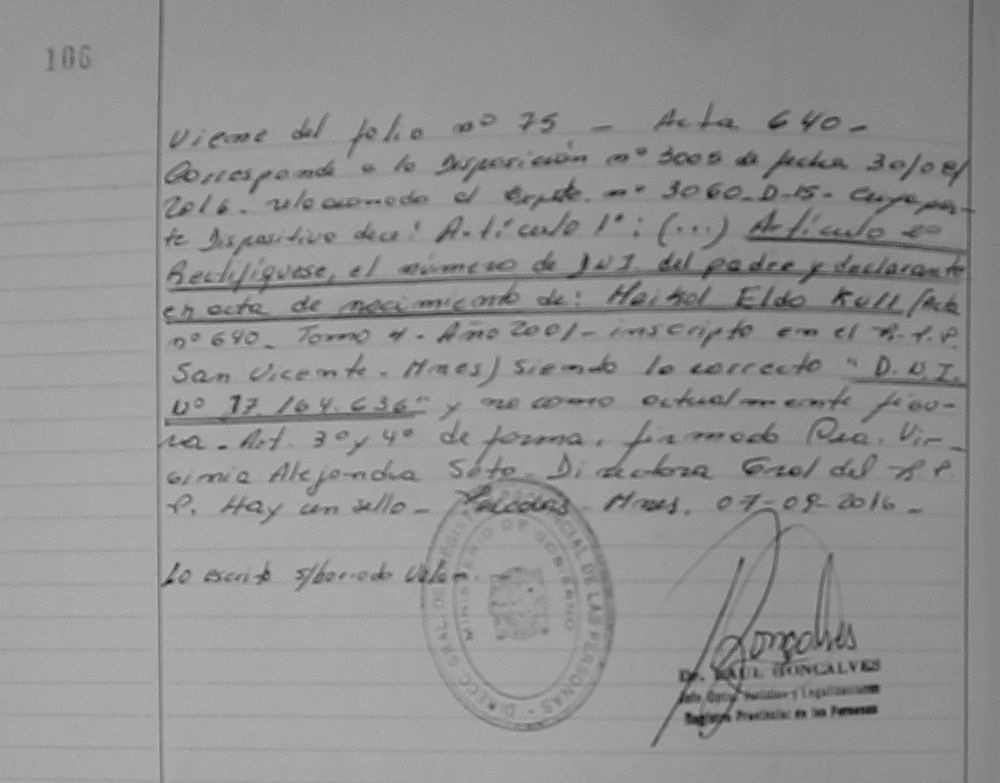 106
Viene del folio nº 75 - Acta 640 -
Corresponde a la Disposición nº 3005 de fecha 30/08/
2016. relacionado al Expte. nº 3060-D-15- cuya par-
te Dispositiva dice: Artículo 1º: (...) Artículo 2º
Rectifíquese, el número de D.N.I. del padre y declarante
en acta de nacimiento de: Maikol Eldo Kull (Acta
nº 640 - Tomo 4 - Año 2001 - inscripto en el R.P.P.
San Vicente - Mnes) siendo lo correcto "D.N.I.
Nº 17.164.636" y no como actualmente figu-
ra. Art. 3º y 4º de forma. firmado Dra. Vir-
ginia Alejandra Soto Directora Gral del R.P.
P. Hay un sello - Posadas - Mnes. 07-09-2016 -
Lo escrito s/borrado Valen.
DIRECC. GRAL. DE REGISTRO PROVINCIAL DE LAS PERSONAS
MINISTERIO DE GOBIERNO
Gonçalves
Dr. RAUL GONCALVES
Jefe Dpto. y Legalizaciones
Registro Provincial de las Personas